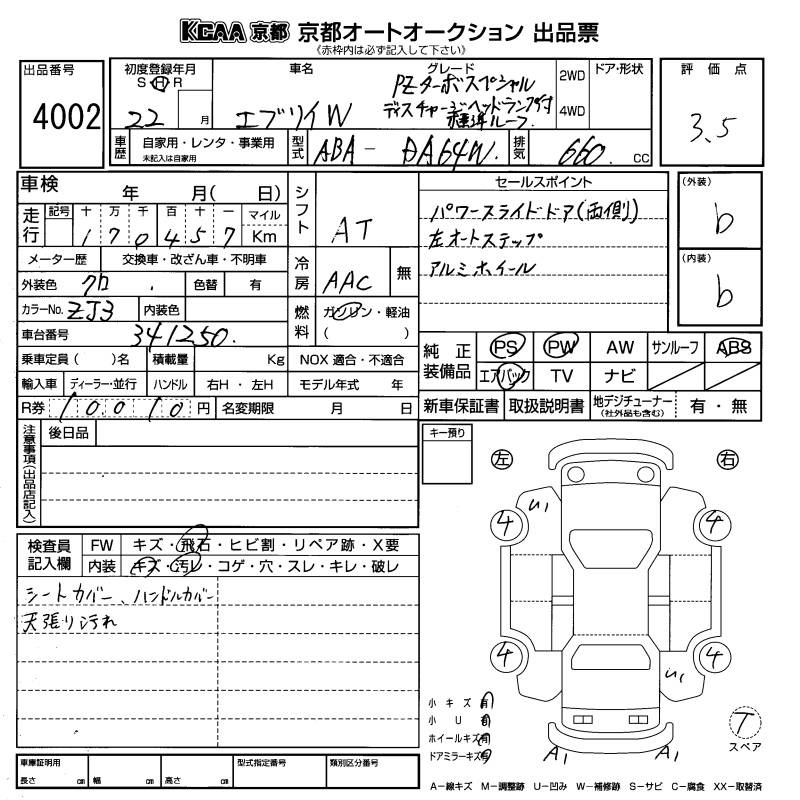 KCAA 京都 京都オートオークション 出品票
《赤枠内は必ず記入して下さい》
出品番号
4002
初度登録年月
S H R
22 月
車名
エブリイW
グレード
PZターボスペシャル
ディスチャージヘッドランプ付
標準ルーフ
2WD
4WD
ドア・形状
評価点
3.5
車歴
自家用・レンタ・事業用
未記入は自家用
型式
ABA- DA64W.
排気
660. cc
車検 年 月( 日)
走行
記号 十 万 千 百 十 一 マイル
1 7 0 4 5 7 Km
メーター歴 交換車・改ざん車・不明車
外装色 クロ 色替 有
カラーNo. ZJ3 内装色
車台番号 341250.
乗車定員( )名 積載量 Kg
輸入車 ディーラー・並行 ハンドル 右H・左H
R券 10010 円 名変期限 月 日
シフト
AT
冷房
AAC 無
燃料
ガソリン・軽油
( )
NOX 適合・不適合
モデル年式 年
セールスポイント
パワースライドドア(両側)
左オートステップ
アルミホイール
(外装)
b
(内装)
b
純正装備品
PS PW AW サンルーフ ABS
エアバック TV ナビ
新車保証書 取扱説明書 地デジチューナー (社外品も含む) 有・無
注意事項(出品店記入)
後日品
キー預り
検査員記入欄
FW キズ・飛石・ヒビ割・リペア跡・X要
内装 キズ・汚レ・コゲ・穴・スレ・キレ・破レ
シートカバー、ハンドルカバー
天張り汚れ
左 右
U1
4 4
4 4
U1
A1 A1
小キズ 有
小U 有
ホイールキズ 有
ドアミラーキズ 有
T
スペア
車庫証明用
長さ cm 幅 cm 高さ cm
型式指定番号
類別区分番号
A−線キズ M−調整跡 U−凹み W−補修跡 S−サビ C−腐食 XX−取替済